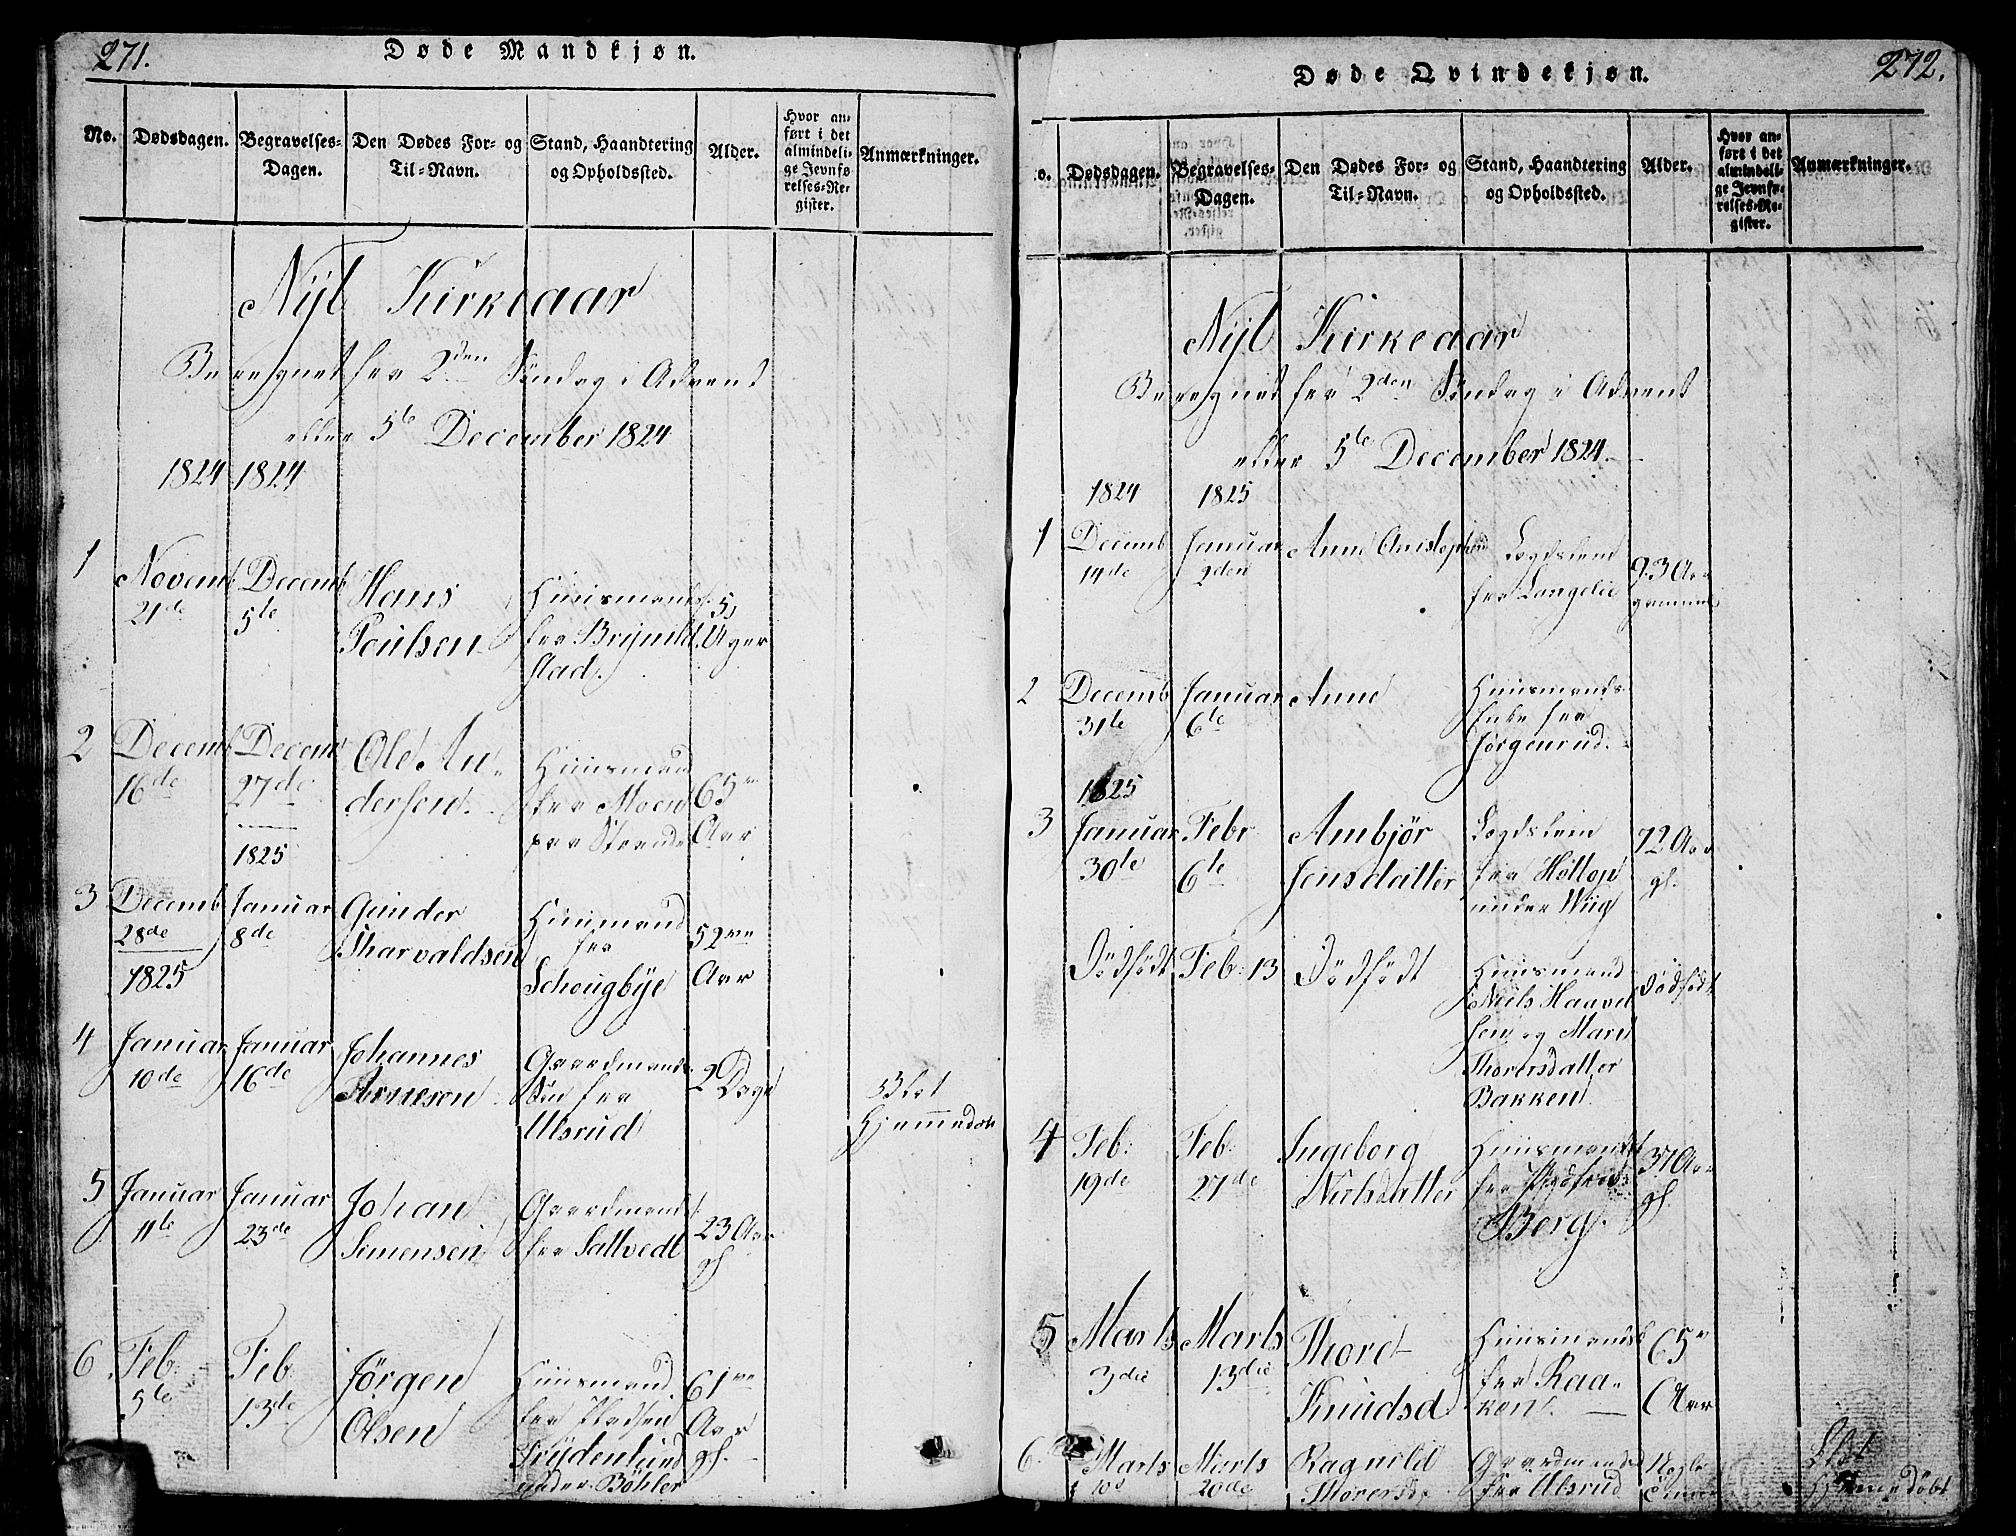 271.
Døde Mandkjøn.
No.
Dødsdagen.
Begravelses-
Dagen.
Den Dødes For- og
Til-Navn.
Stand, Haandtering
og Opholdssted.
Alder.
Hvor an-
ført i det
almindeli-
ge Jevnfø-
relses-Re-
gister.
Anmærkninger.
Nyt Kirkeaar
Beregnet fra 2den Söndag i Advent
eller 5te December 1824
1824 1824
1
Novemb
21de
Decemb
5te
Hans
Poulsen
Huusmands
fra Brynild
stad.
5
Uger
2
Decemb
16de
Decemb
27de
1825
Ole An-
dersen
Huusmand
fra Moen
paa Strande
65
Aar
3
Decemb
28de
1825
Januar
8de
Gunder
Tharvaldsen
Huusmand
fra
Schougbye
52
Aar
4
Januar
10de
Januar
16de
Johannes
Arnesen
Gaardmands
Sön fra
Ulsrud
2 Dage
Blot
Hjemmedöbt
5
Januar
11te
Januar
23de
Johan
Simensen
Gaardmands
fra Saltvedt
23 Aar
gl.
6
Feb:
5te
Feb
13de
Jörgen
Olsen
Huusmand
fra Pladsen
Frydenlund
under Böhler
61
Aar
gl.
272.
Døde Qvindekjøn.
o.
Dødsdagen.
Begravelses-
Dagen.
Den Dødes For- og
Til-Navn.
Stand, Haandtering
og Opholdssted.
Alder.
Hvor an-
ført i det
almindeli-
ge Jevnfø-
relses-Re-
gister.
Anmærkninger.
Nyt Kirkeaar
Beregnet fra 2den Söndag i Advent
eller 5te December 1824
1824 1825
1
Decemb
14de
Januar
2den
Anne
Lægdslem
fra Langelie
93 Aar
gammel
2
Decemb
31te
Januar
6te
Anne
Huusmands
Enke fra
Jörgenrud.
1825
3
Januar
30te
Febr
6te
Ambjör
Jensdatter
Lægdslem
fra Holtop
under Wiig
72 Aar
gl.
Dödfödt
Feb: 13
Dödfödt
Huusmand
Niels Haavel
sen og Mari
Thorersdatter
Bakken
Dödfödt
4
Feb:
19de
Feb:
27de
Ingeborg
Nielsdatter
Huusmands
fra Pladsen
Berg.
37 Aar
gl.
5
Marts
3die
Marts
13die
Thore
Knudsd
Huusmands
fra Raa-
ken.
65
Aar
6.
Marts
Marts
20de
Ragnild
Thorersd
Gaardmands
fra Ulsrud
Nogle
Timer
Blot
Hjemmedöbt